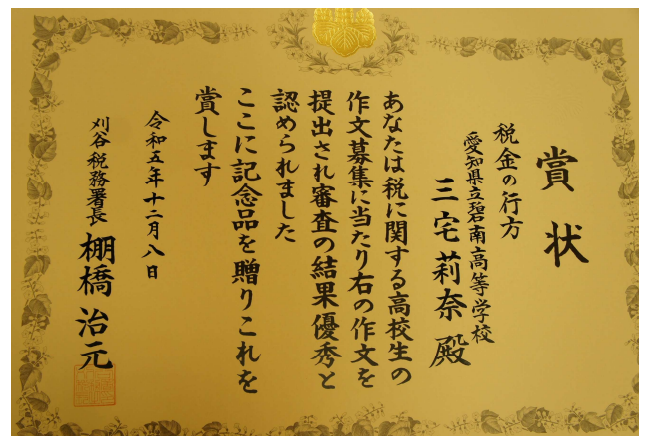 賞状
税金の行方
愛知県立碧南高等学校
三宅莉奈殿
あなたは税に関する高校生の
作文募集に当たり右の作文を
提出され審査の結果優秀と
認められました
ここに記念品を贈りこれを
賞します
令和五年十二月八日
刈谷税務署長
棚橋治元